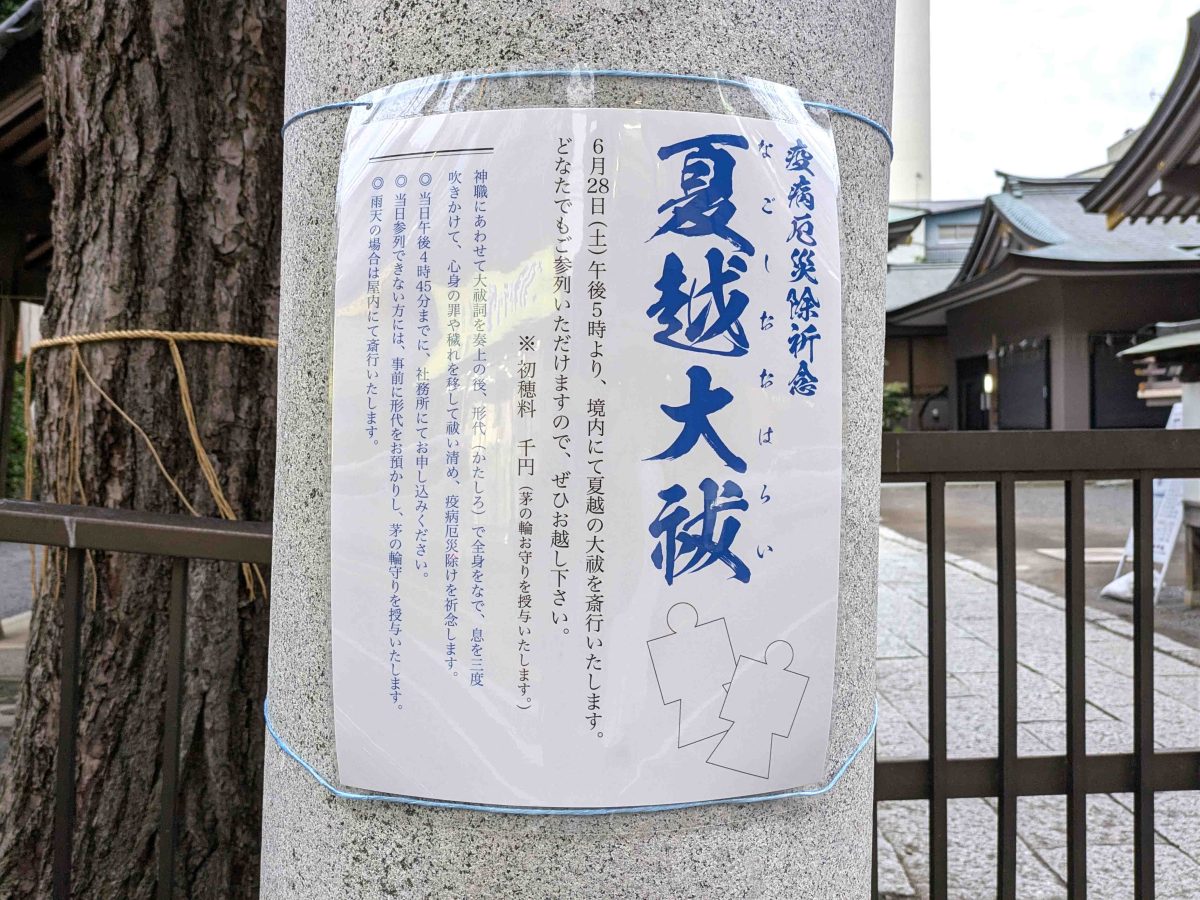 疫病厄災除祈念
なごしおおはらい
夏越大祓
6月28日(土)午後5時より、境内にて夏越の大祓を斎行いたします。
どなたでもご参列いただけますので、ぜひお越し下さい。
※初穂料　千円(茅の輪お守りを授与いたします。)
神職にあわせて大祓詞を奏上の後、形代(かたしろ)で全身をなで、息を三度
吹きかけて、心身の罪や穢れを移して祓い清め、疫病厄災除けを祈念します。
◎当日午後4時45分までに、社務所にてお申し込みください。
◎当日参列できない方には、事前に形代をお預かりし、茅の輪守りを授与いたします。
◎雨天の場合は屋内にて斎行いたします。